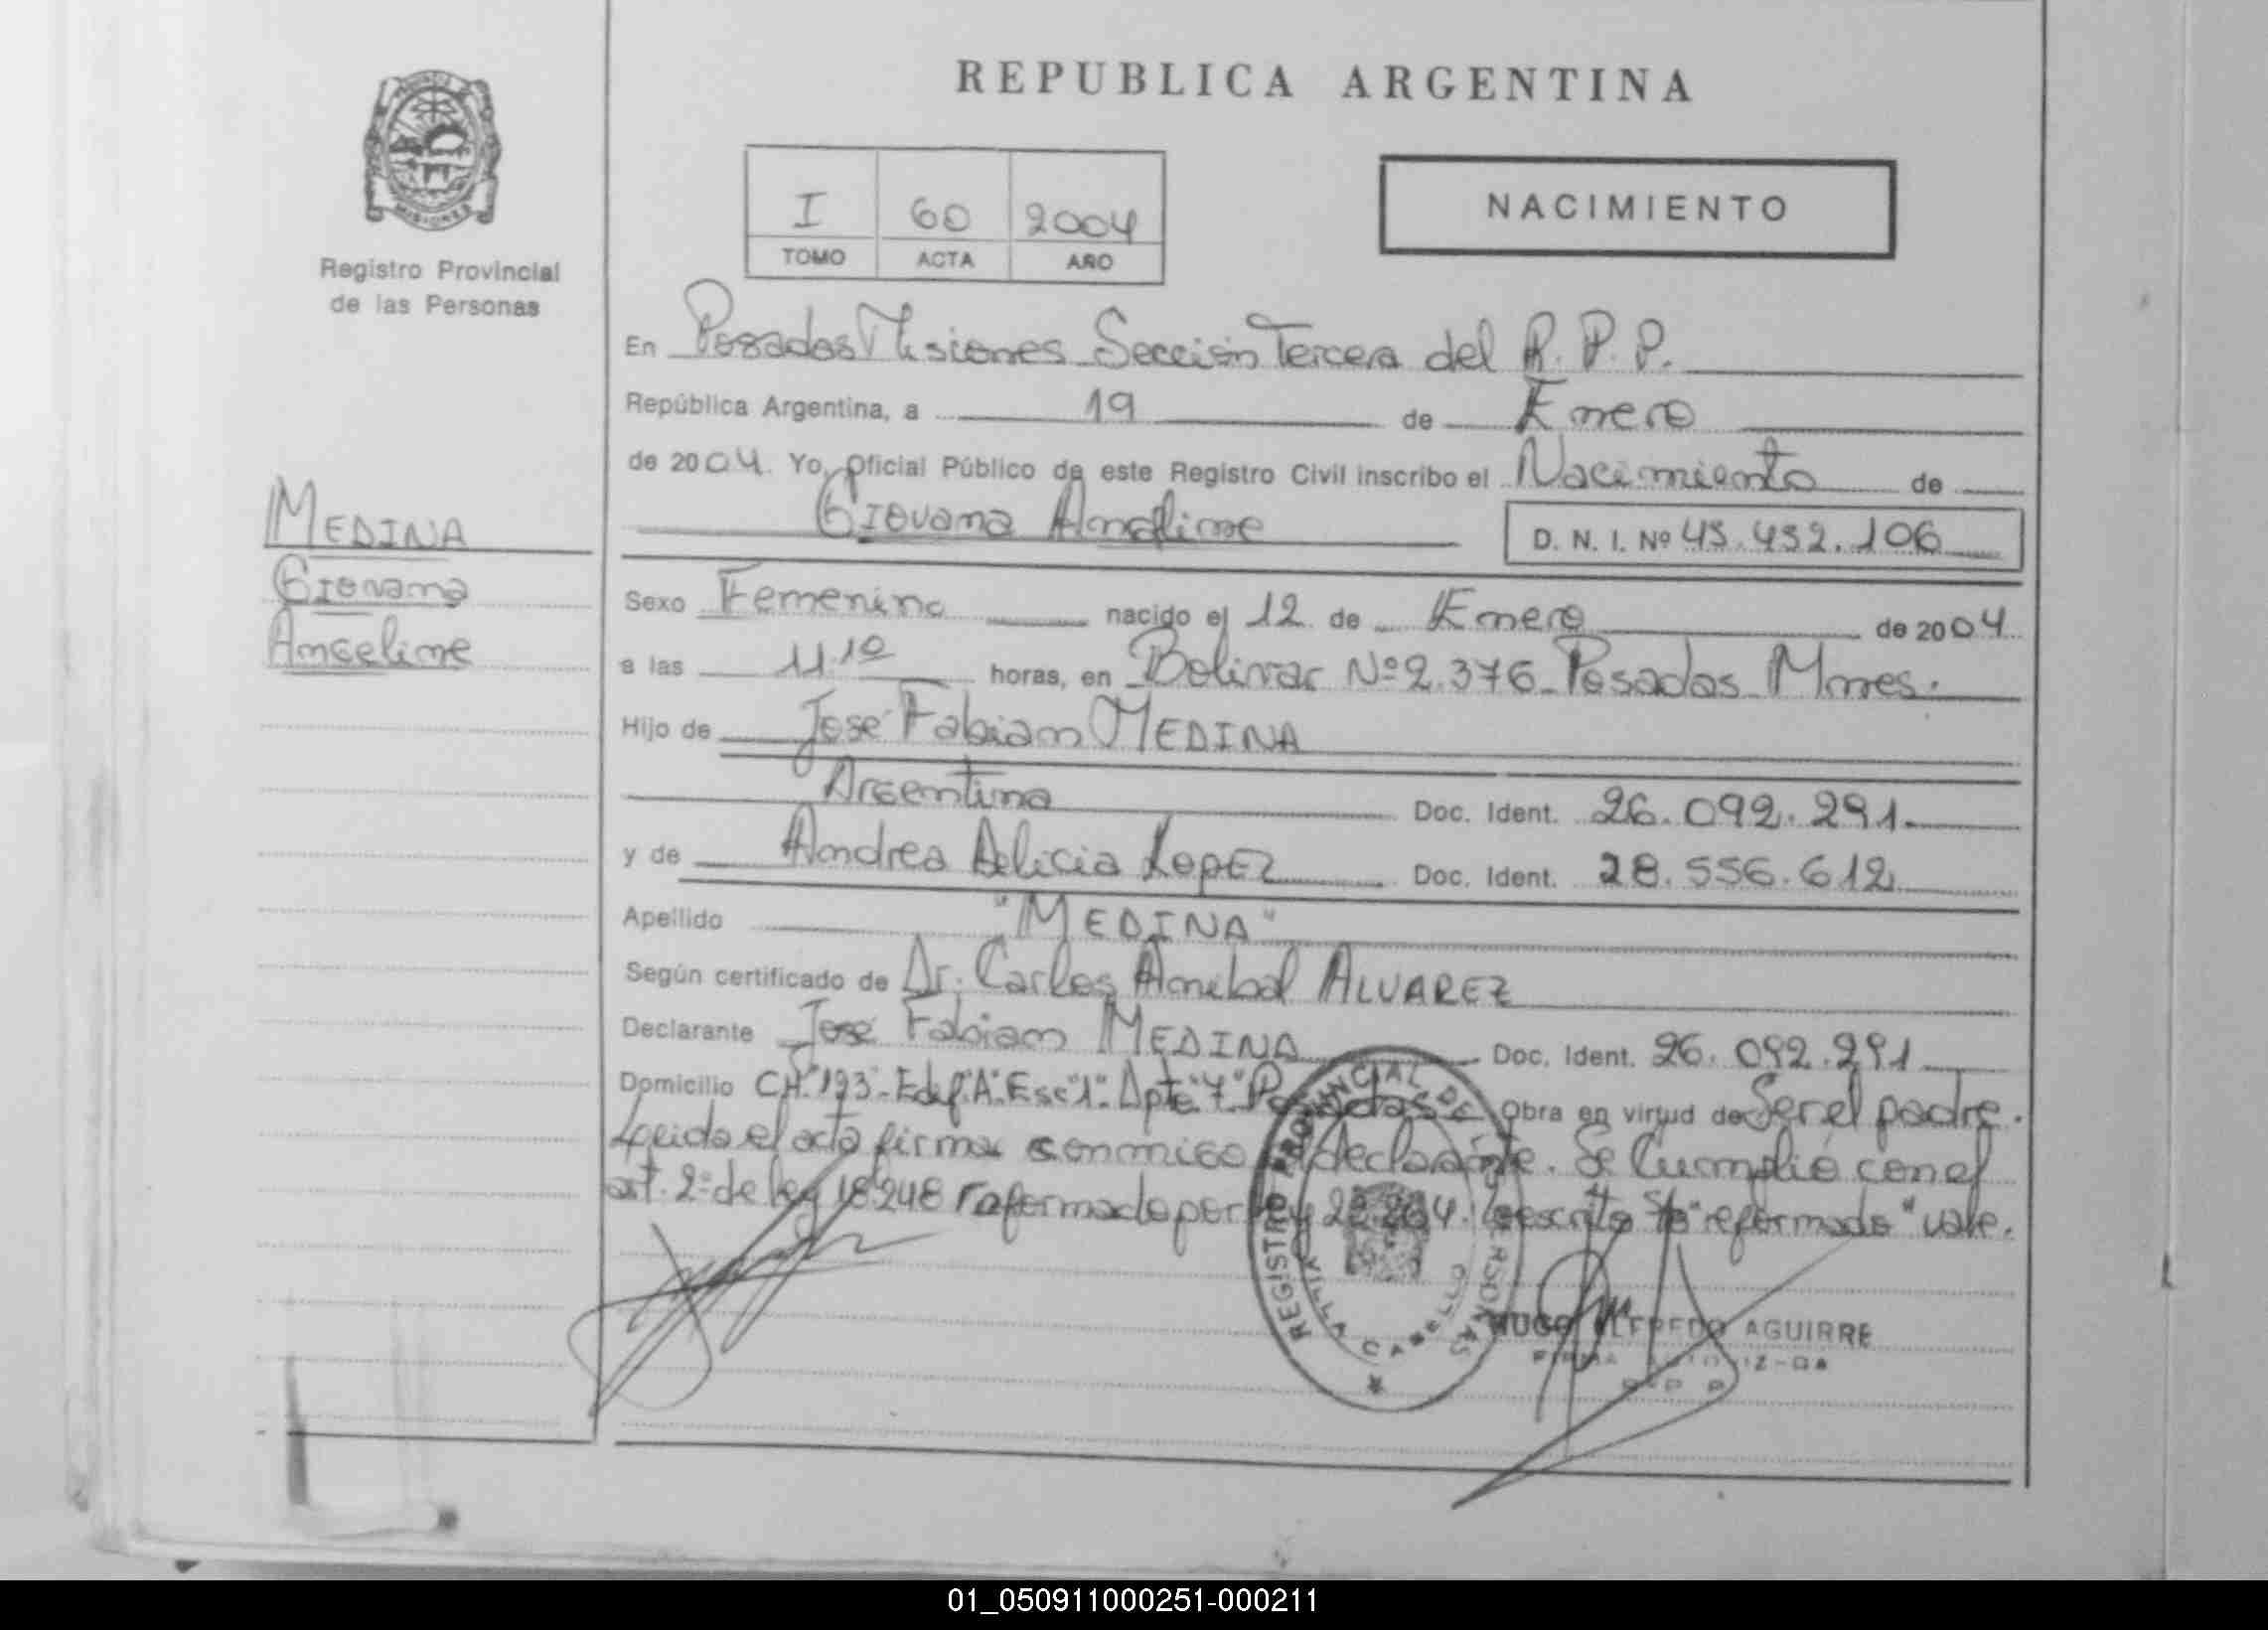 REPUBLICA ARGENTINA
MISIONES
Registro Provincial
de las Personas
I 60 2004
TOMO ACTA AÑO
NACIMIENTO
En Posadas Misiones Sección Tercera del R.P.P.
República Argentina, a 19 de Enero
de 2004. Yo, Oficial Público de este Registro Civil inscribo el Nacimiento de
Giovana Angeline
D. N. I. Nº 45.432.106
MEDINA
Giovana
Angeline
Sexo Femenino nacido el 12 de Enero de 2004
a las 11.10 horas, en Bolivar Nº 2.376 - Posadas - Mnes.
Hijo de José Fabian MEDINA
Argentina Doc. Ident. 26.092.291.
y de Andrea Delicia LOPEZ Doc. Ident. 28.556.612
Apellido "MEDINA"
Según certificado de Dr. Carlos Anibal ALVAREZ
Declarante José Fabian MEDINA Doc. Ident. 26.092.291
Domicilio CH. 193 - Edif. "A" Esc "1" - Dpte "7" Posadas Obra en virtud de Ser el padre.
Leida el acta firma conmigo el declarante. Se Cumplió con el
art. 2º de ley 18248 reformado por ley 23.264. s/b "reformado" vale.
REGISTRO PROVINCIAL DE PERSONAS
VILLA CABELLO
HUGO ALFREDO AGUIRRE
FIRMA AUTORIZADA
R P P
01_050911000251-000211